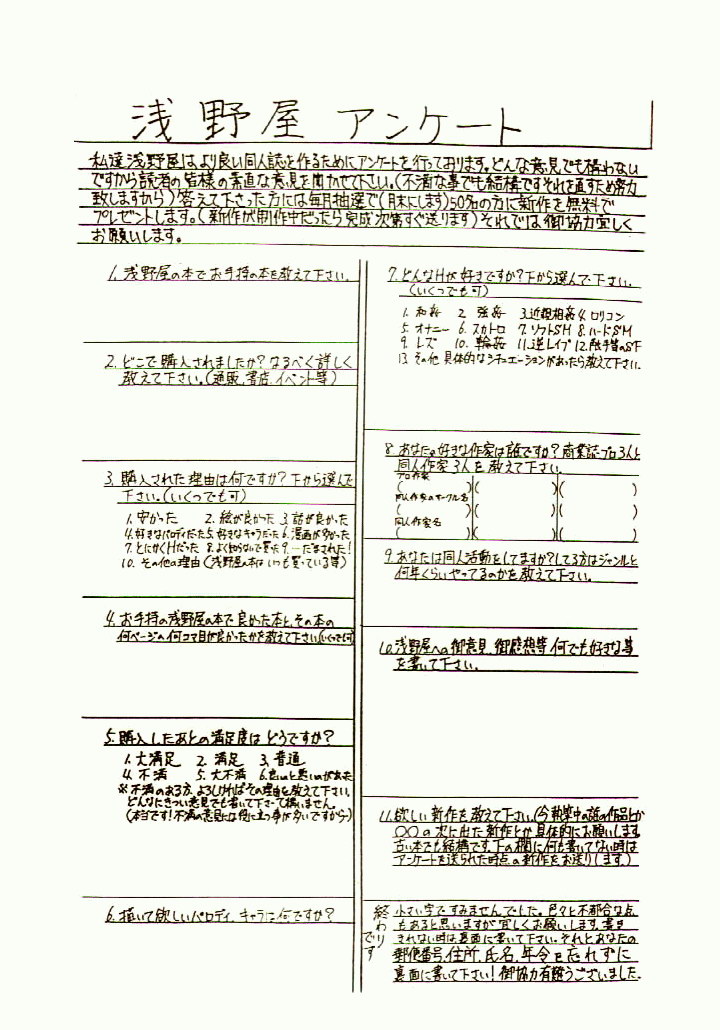 浅野屋 アンケート
私達浅野屋は、より良い同人誌を作るためにアンケートを行っております。どんな意見でも構わない
ですから読者の皆様の素直な意見を聞かせて下さい。(不満な事でも結構ですそれを直すため努力
致しますから)答えて下さった方には毎月抽選で(月末にします)50名の方に新作を無料で
プレゼントします。(新作が制作中だったら完成次第すぐ送ります)それでは御協力宜しく
お願いします。
1. 浅野屋の本でお手持の本を教えて下さい。
2. どこで購入されましたか?なるべく詳しく
教えて下さい。(通販、書店、イベント等)
3. 購入された理由は何ですか?下から選んで
下さい。(いくつでも可)
1. 安かった 2. 絵が良かった 3. 話が良かった
4. 好きなパロディだった 5. 好きなキャラだった 6. 漫画が多かった
7. とにかくHだった 8. よく知らないで買った 9. 一だまされた!
10. その他の理由(浅野屋の本はいつも買っている等)
4. お手持の浅野屋の本で良かった本と、その本の
何ページの何コマ目が良かったかを教えて下さい(いくつでも可)
5. 購入したあとの満足度はどうですか?
1. 大満足 2. 満足 3. 普通
4. 不満 5. 大不満 6. 良いのと悪いのがあった
※不満のある方、よろしければその理由を教えて下さい。
どんなにきつい意見でも書いて下さって構いません。
(本当です!不満の意見には役に立つ事が多いですから)
6. 描いて欲しいパロディ、キャラは何ですか?
7. どんなHが好きですか?下から選んで下さい。
(いくつでも可)
1. 和姦 2. 強姦 3. 近親相姦 4. ロリコン
5. オナニー 6. スカトロ 7. ソフトSM 8. ハードSM
9. レズ 10. 輪姦 11. 逆レイプ 12. 触手等のSF
13. その他 具体的なシチュエーションがあったら教えて下さい。
8. あなたの好きな作家は誰ですか?商業誌・プロ3人と
同人作家3人を教えて下さい。
プロ作家
( )( )( )
同人作家のサークル名
( )( )( )
同人作家名
( )( )( )
9. あなたは同人活動をしてますか?してる方はジャンルと
何年くらいやってるのかを教えて下さい。
10. 浅野屋への御意見、御感想等、何でも好きな事
を書いて下さい。
11. 欲しい新作を教えて下さい。(今執筆中の話の作品とか
〇〇の次に出た新作とか具体的にお願いします
古い本でも結構です。下の欄に何も書いてない時は
アンケートを送られた時点の新作をお送りします。)
終わりです
小さい字ですみませんでした。色々と不都合な点
もあると思いますが宜しくお願いします。書き
きれない時は、裏面に書いて下さい。それとあなたの
郵便番号、住所、氏名、年令を忘れずに
裏面に書いて下さい!御協力有難うございました。